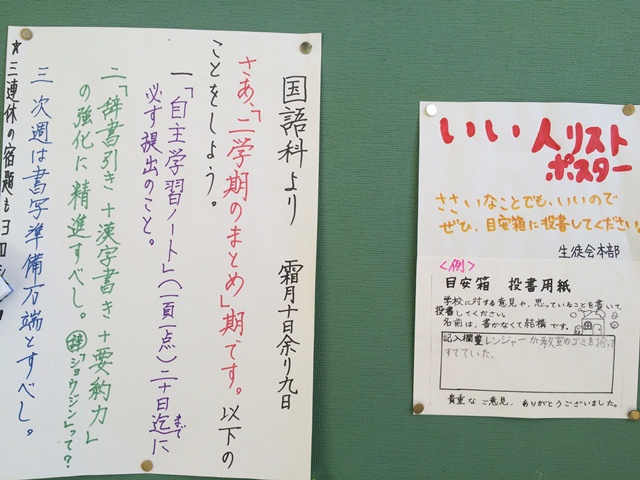 国語科より　霜月十日余り九日
さあ、「二学期のまとめ」期です。以下の
ことをしよう。
一「自主学習ノート」(一頁一点)二十日迄に
まで
必ず提出のこと。
二「辞書引き+漢字書き+要約力」
の強化に精進すべし。辞「ショウジン」って?
三 次週は書写準備万端とすべし。
★三連休の宿題も
いい人リスト
ポスター
ささいなことでも、いいので
ぜひ、目安箱に投書してください!
生徒会本部
<例>
目安箱 投書用紙
学校に対する意見や、思っていることを書いて
投書してください。
名前は、書かなくて結構です。
記入欄
レンジャーが教室のゴミを拾って
すてていた。
貴重なご意見、ありがとうございました。